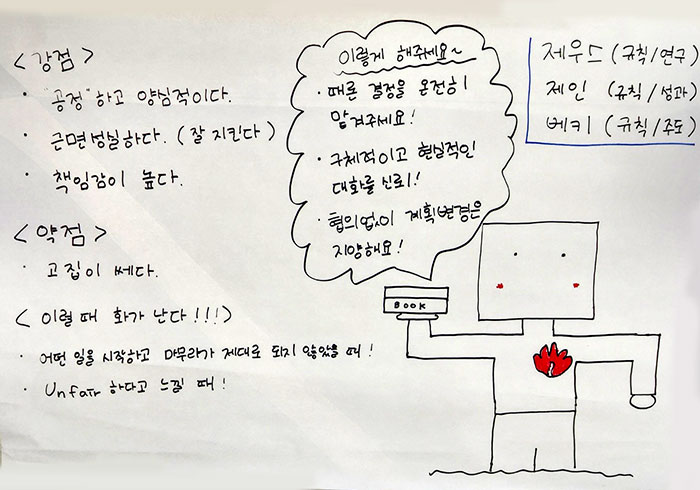 <강점>
· "공정"하고 양심적이다.
· 근면성실하다. (잘 지킨다)
· 책임감이 높다.
<약점>
· 고집이 쎄다.
<이럴 때 화가 난다!!!>
· 어떤 일을 시작하고 마무리가 제대로 되지 않았을 때!
· Unfair 하다고 느낄 때!
이렇게 해주세요~
· 때론 결정을 온전히
맡겨주세요!
· 구체적이고 현실적인
대화를 신뢰!
· 협의없이 계획변경은
지양해요!
BOOK
제우드 (규칙/연구)
제인 (규칙/성과)
베키 (규칙/주도)